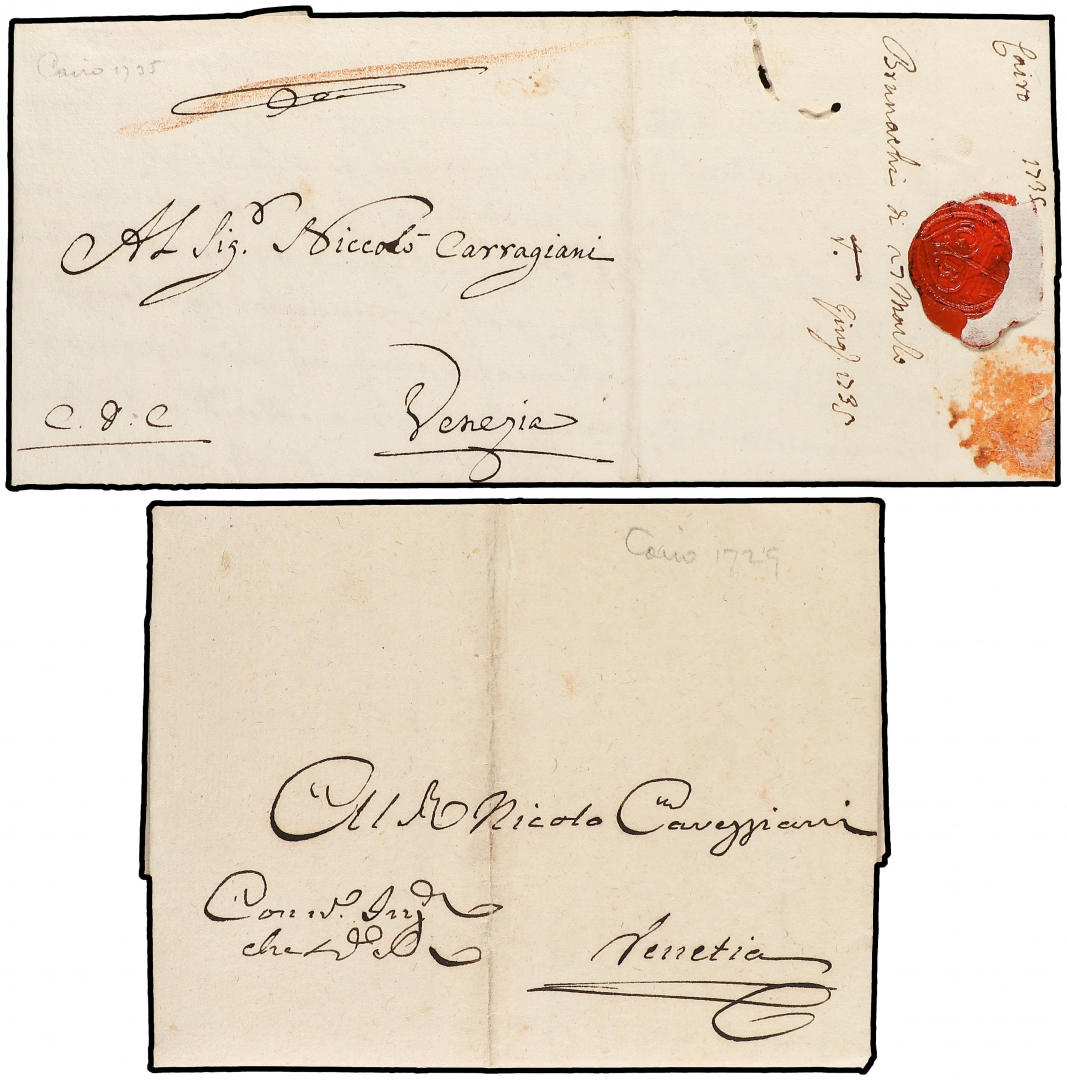 Cairo 1735
Al Sig.r Niccolò Carragiani
C. D: C
Venezia
Cairo 1735
Brunachi di 27 Marzo
Giug. 1735
Cairo 1729
All Sr Nicolo Caraggiani
Con
che
Venetia